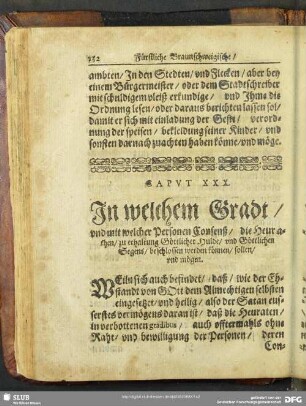 152 Fürstliche Braunschweigische/
ambten/ In den Stedten/ und Flecken/ aber bey
einem Bürgermeister/ oder dem Stadtschreiber
mit schuldigem vleiß erkundige/ und Ihme die
Ordnung lesen/ oder daraus berichten lassen sol/
damit er sich mit einladung der Gest/ verord-
nung der speisen/ bekleidung seiner Kinder/ und
sonsten darnach zuachten haben könne/ und möge.
CAPVT XXX.
In welchem Gradt/
und mit welcher Personen Consenß/ die Heura-
then/ zu erhaltung Göttlicher Hulde/ und Göttlichen
Segens/ beschlossen werden können/ sollen/
und mögen.
WEiln sich auch befindet/ daß/ wie der Eh-
standt von GOtt dem Almechtigen selbsten
eingesetzet/ und heilig/ also der Satan eus-
serstes vermögens daran ist/ daß die Heuraten/
in verbottenen gradibus/ auch offtermahls ohne
Raht/ und bewilligung der Personen/ deren
Con-
SLUB